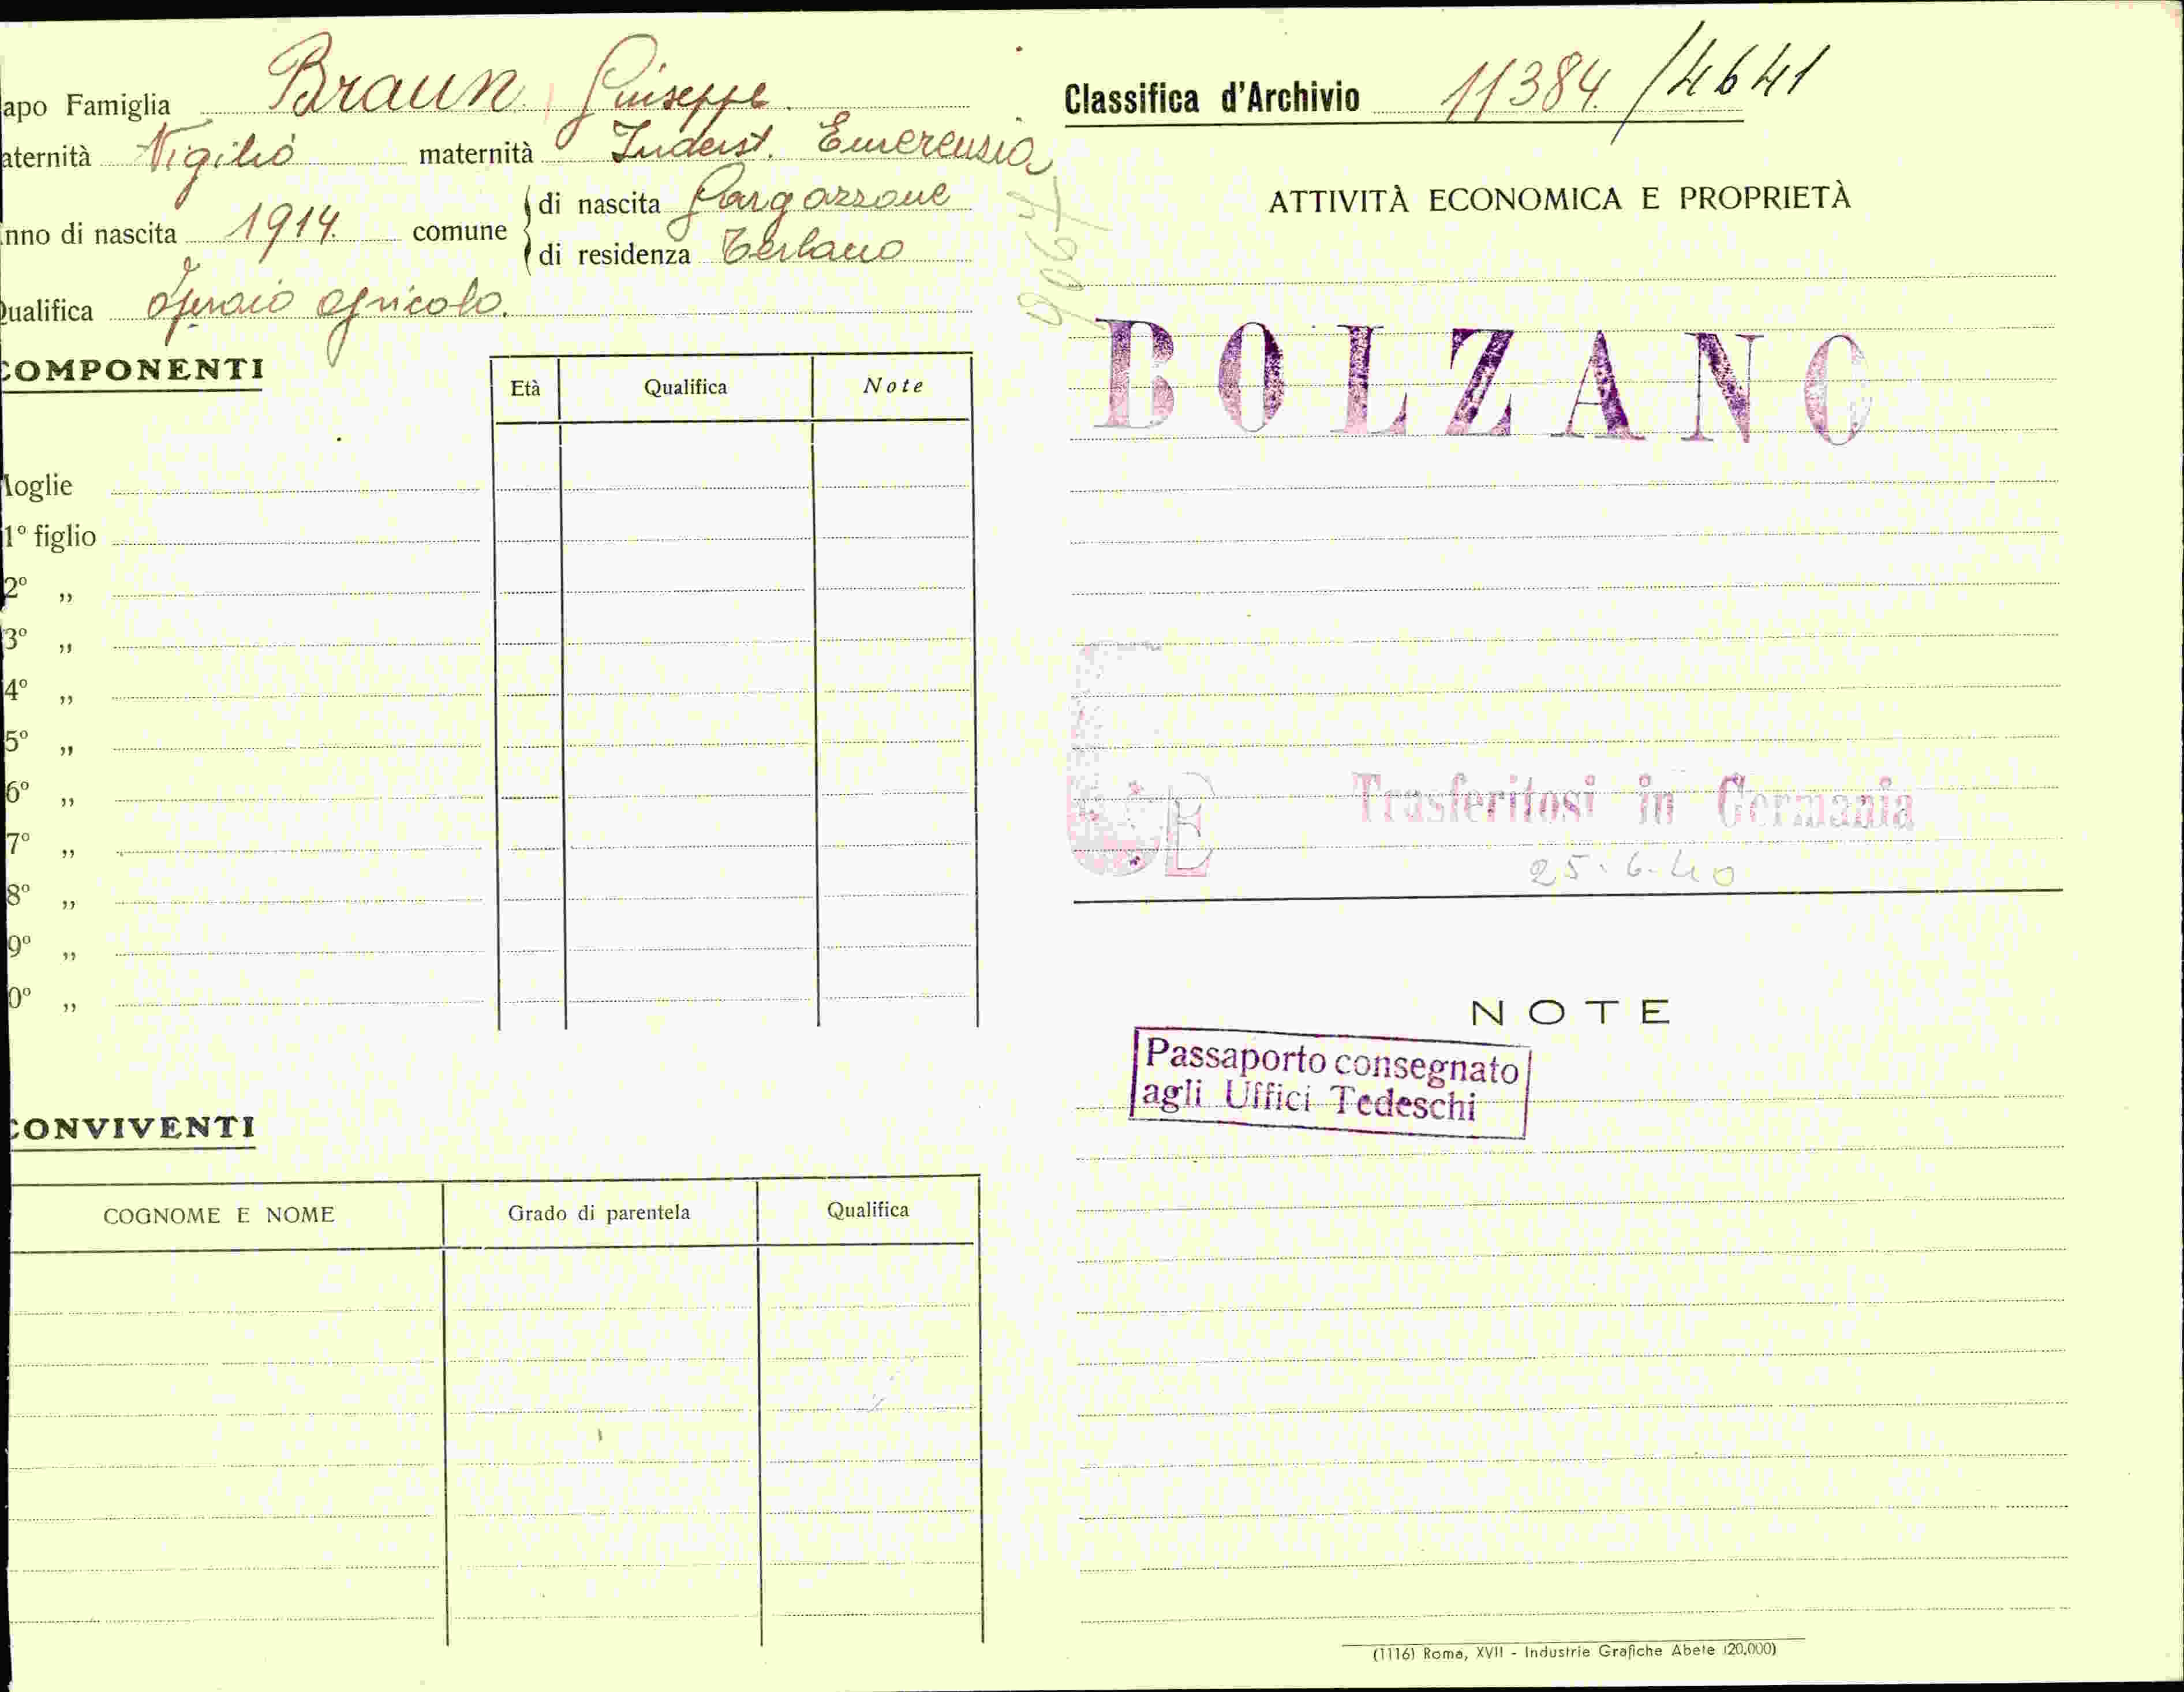 apo Famiglia Braun Giuseppe.
aternità Vigilio maternità Inderst. Emerensia
nno di nascita 1914. comune di nascita Gargazzone
di residenza Terlano
Qualifica Operaio agricolo.
COMPONENTI
Età Qualifica Note
Moglie
1º figlio
2º „
3º „
4º „
5º „
6º „
7º „
8º „
9º „
0º „
CONVIVENTI
COGNOME E NOME Grado di parentela Qualifica
Classifica d'Archivio 11384 /4641
ATTIVITÀ ECONOMICA E PROPRIETÀ
BOLZANO
E
Trasferitosi in Germania
25.6.40
NOTE
Passaporto consegnato
agli Uffici Tedeschi
(1116) Roma, XVII - Industrie Grafiche Abete (20.000)